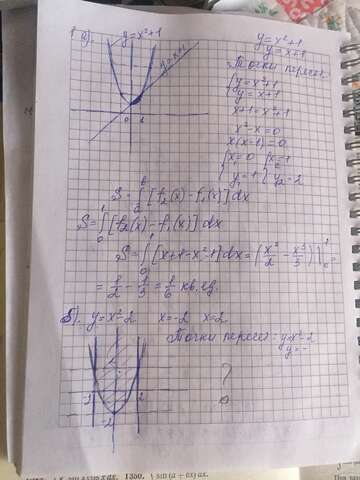 1 а)
y=x²+1
y=x+1
y=x²+1
y=x+1
Точки пересеч.
{y=x²+1
y=x+1
x+1=x²+1
x²-x=0
x(x-1)=0
{x=0 {x=1
y=1 y₂=2
0 1
S=∫[f₂(x)-f₁(x)]dx
S=∫₀¹[f₂(x)-f₁(x)]dx
S=∫₀¹[x+1-x²-1]dx=(x²/2-x³/3)|₀¹=
=1/2-1/3=1/6 кв.ед.
б). y=x²-2 x=-2 x=2
Точки пересеч: y=x²-2
y=-
-2 2
-2
?
1350,